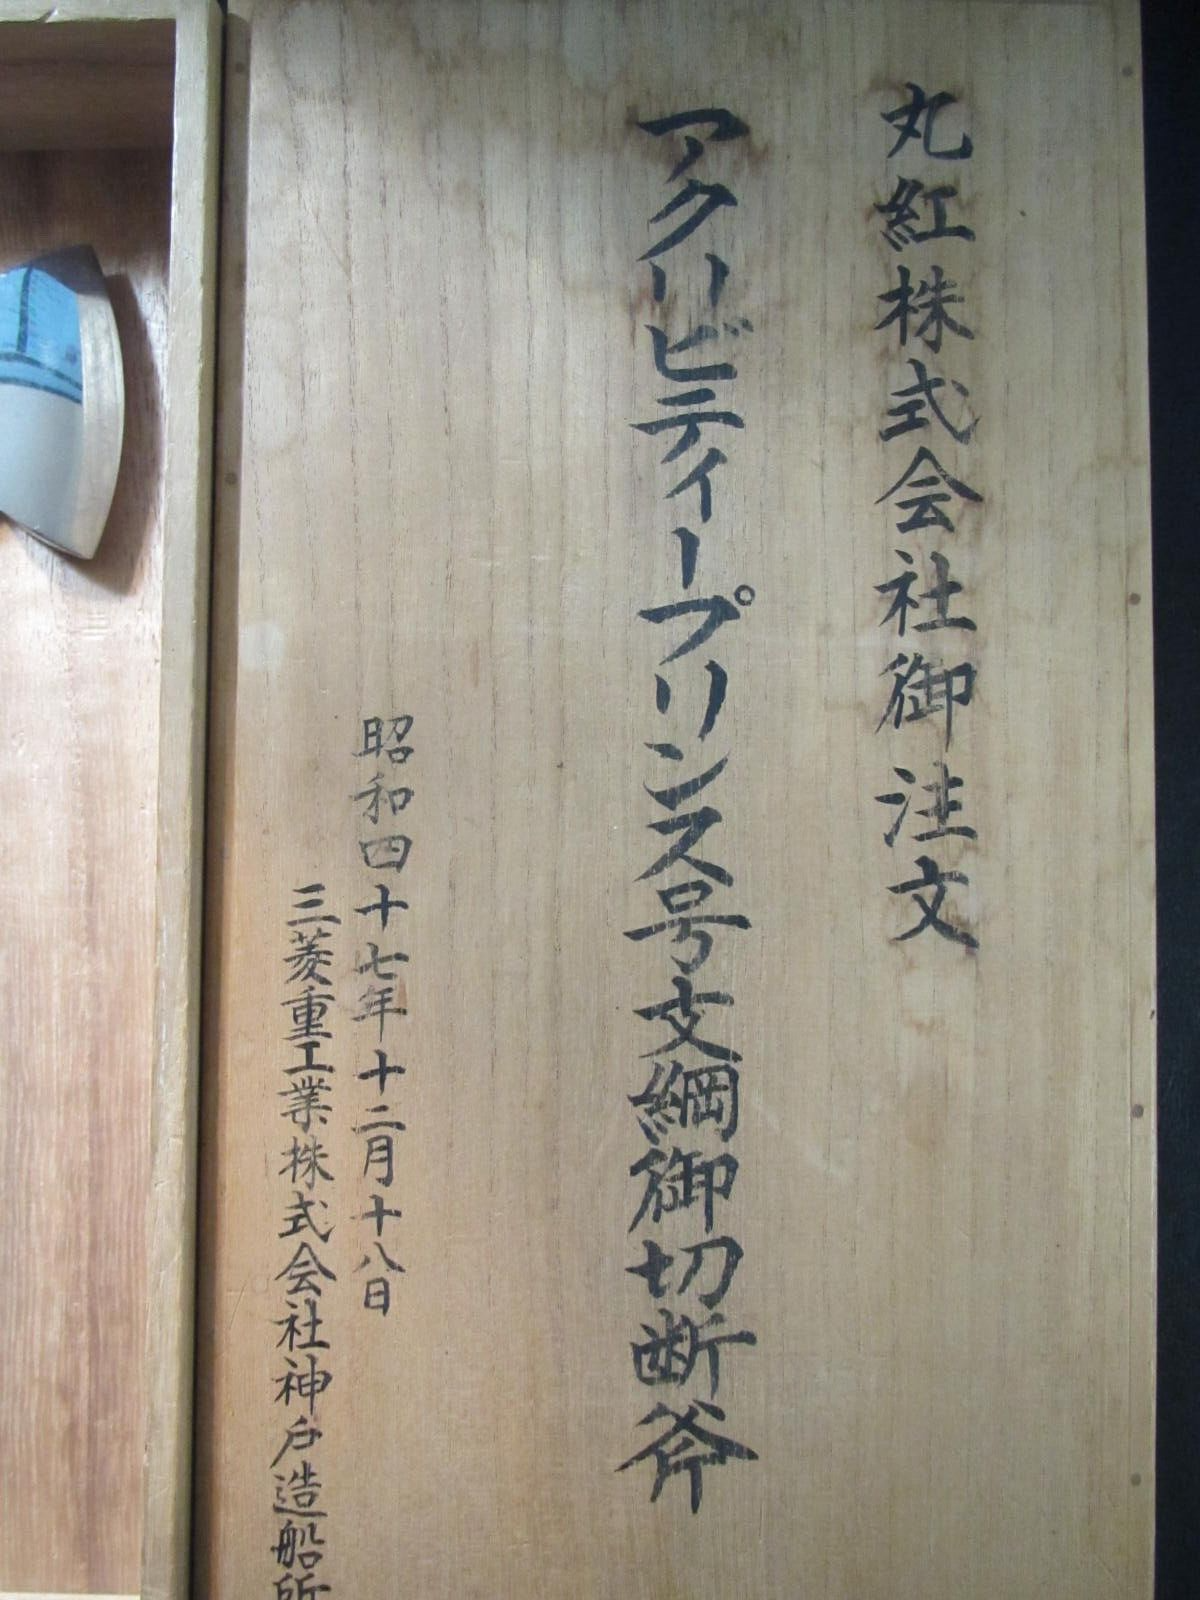 丸紅株式会社御注文
アクリビティープリンス号支綱御切断斧
昭和四十七年十二月十八日
三菱重工業株式会社神戸造船所